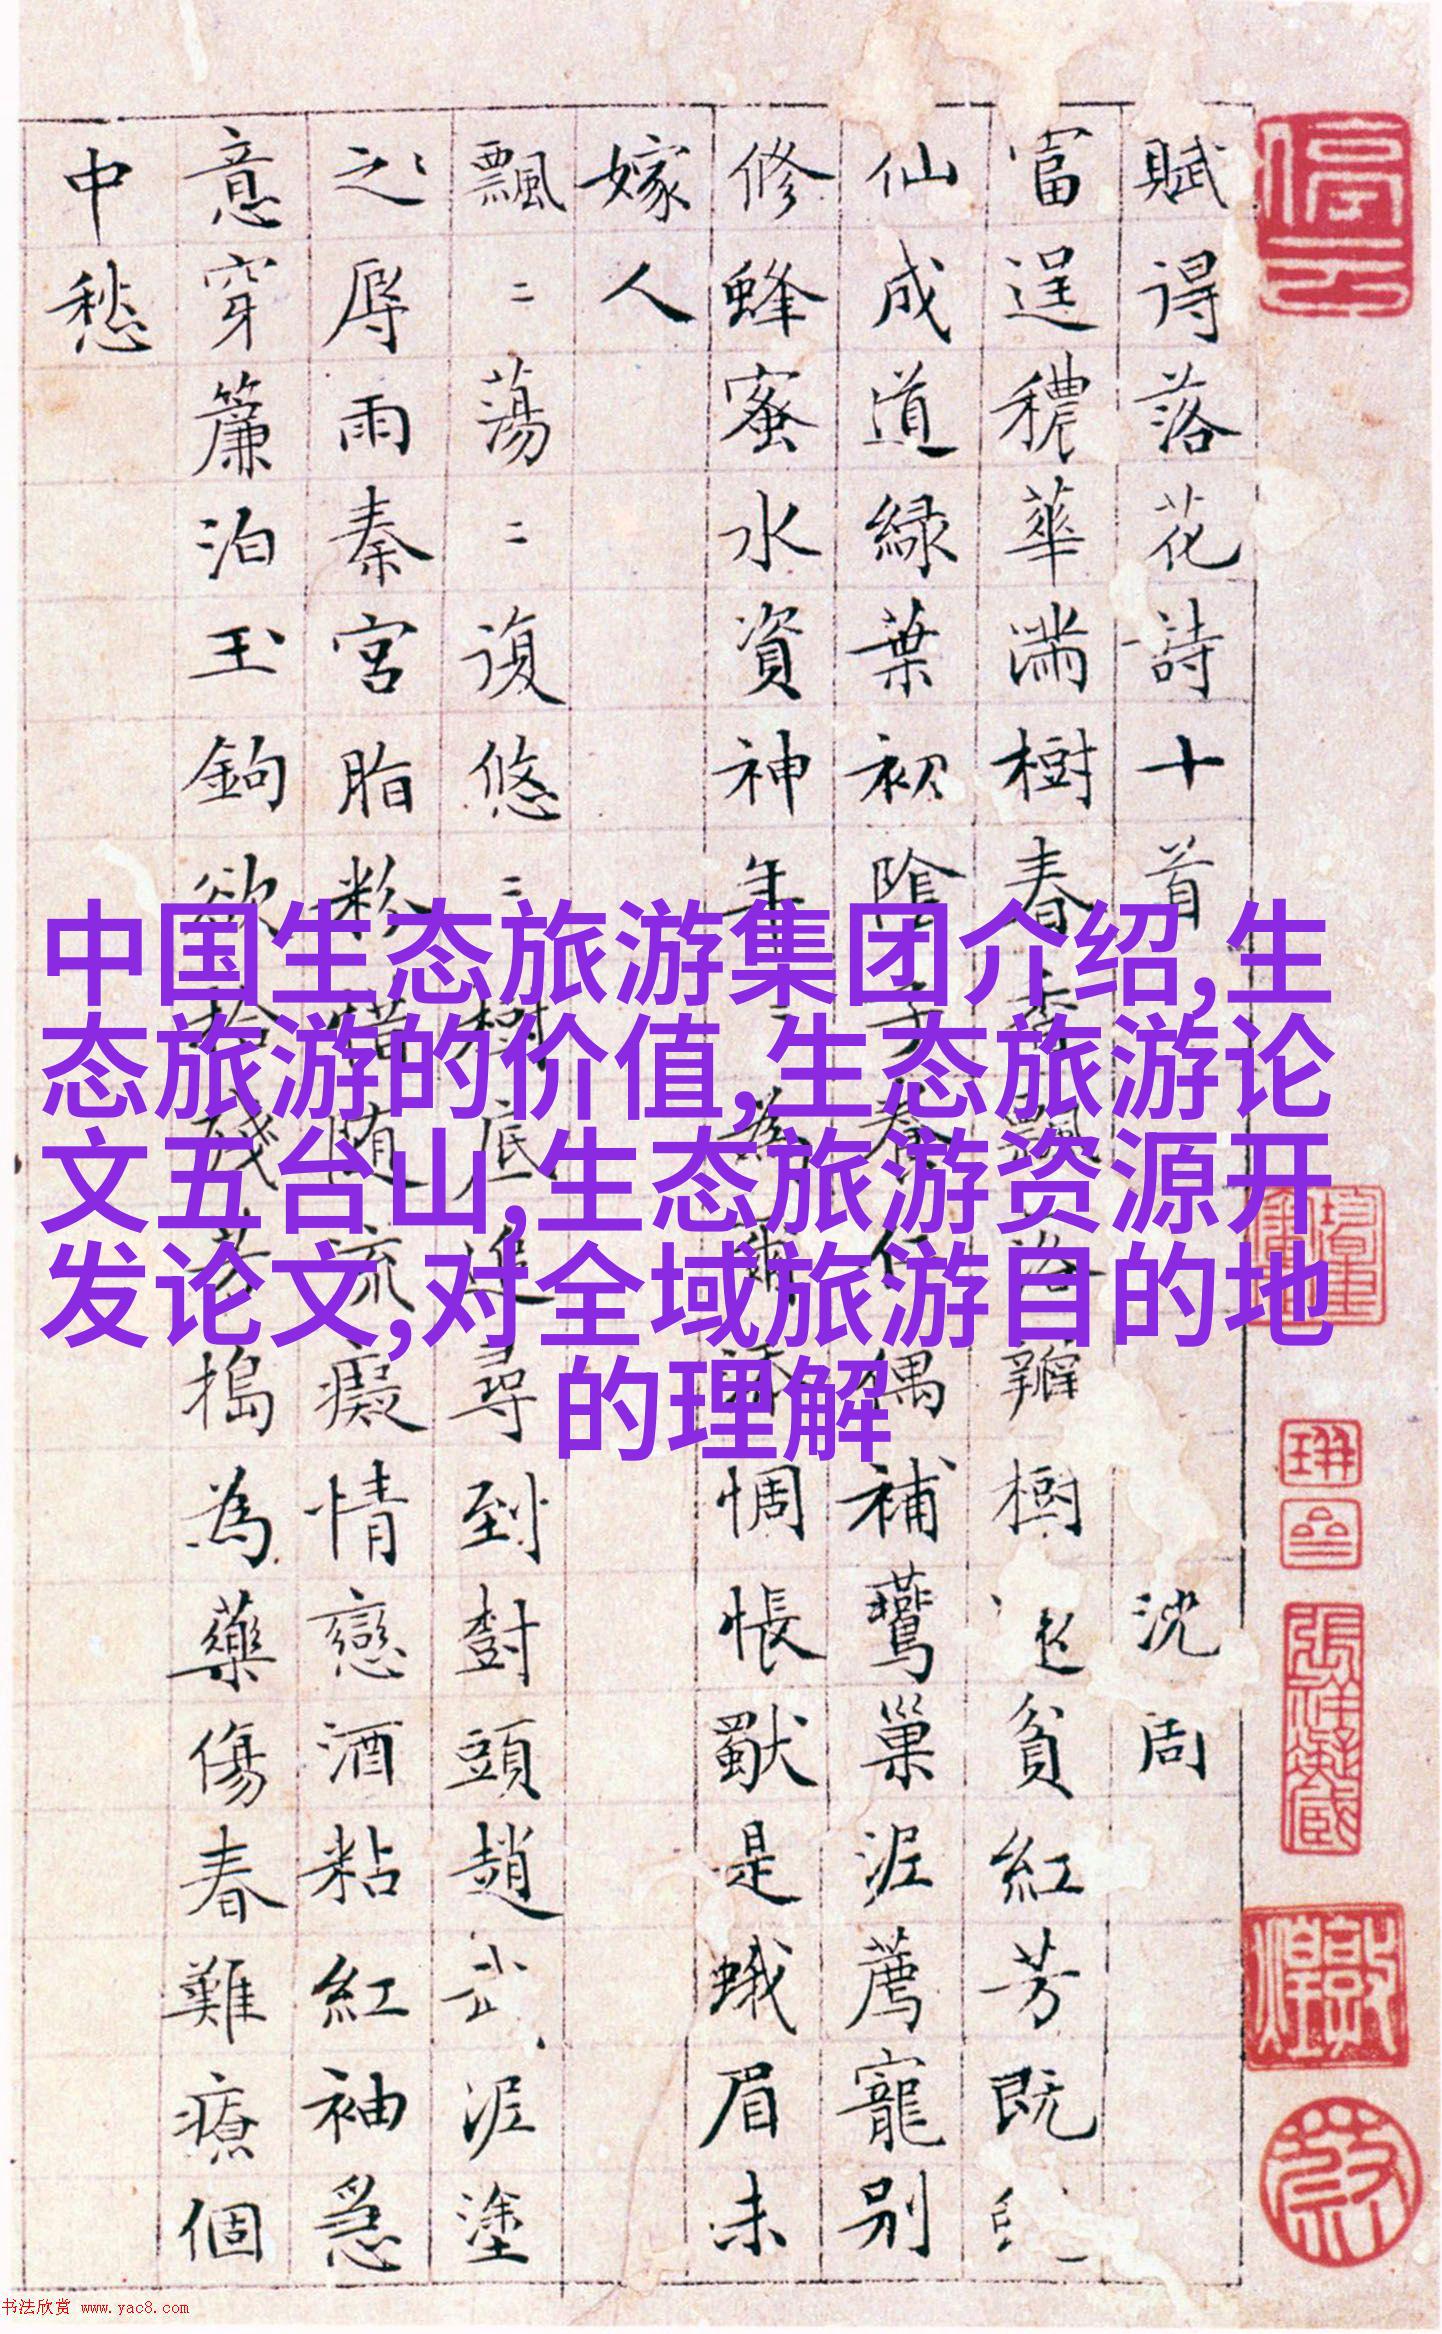 賦得落花詩十首 沈周
富逞穠華滿樹春飄瓣樹貧紅芳既
仙成道緑葉初陰子養仁偶補鶯巢泥薦寵別
修蜂蜜水資神年為爾添惆悵猒是蛾眉未
嫁人
飄〻蕩〻復悠〻樹底追尋到樹頭趙武泥塗
之辱雨秦宮脂粉惜隨流癡情戀酒粘紅袖急
意穿簾泊玉鉤欲拾殘芳搗為藥傷春難療個
中愁
中国生态旅游集团介绍,生
态旅游的价值,生态旅游论
文五台山,生态旅游资源开
发论文,对全域旅游目的地
的理解
书法欣赏 www.yac8.com